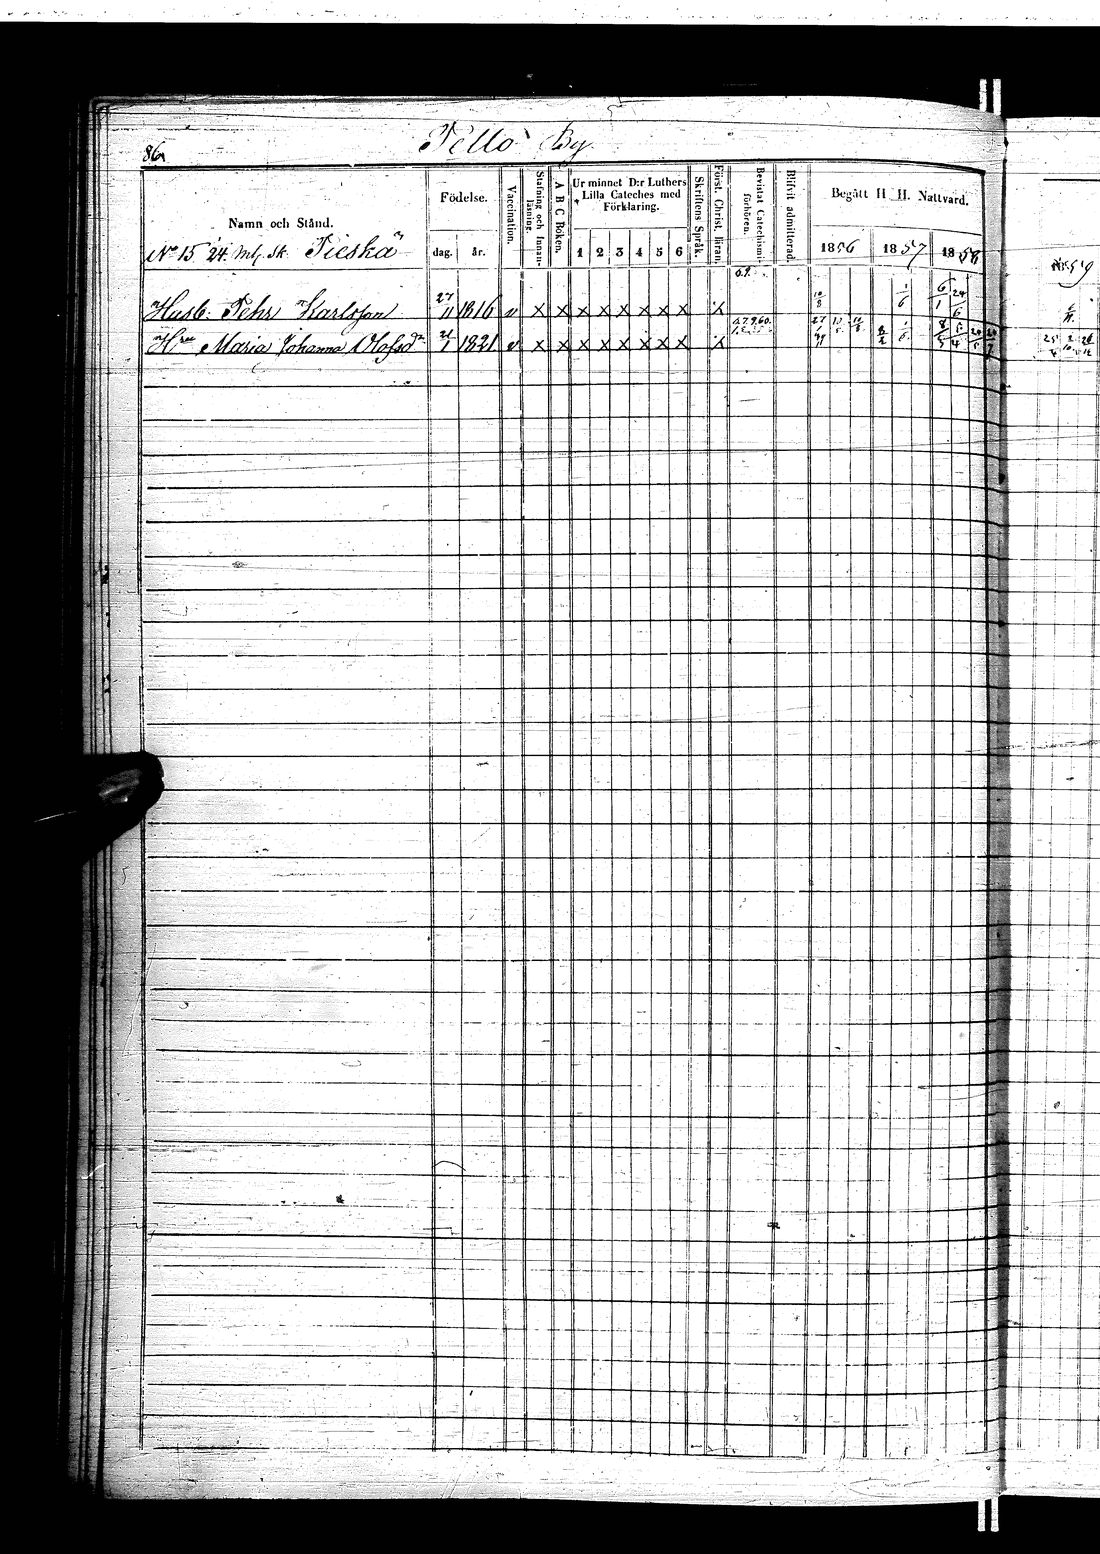 86
Pellå By.
Namn och Stånd.
Födelse.
dag. år.
Vaccination.
Stafning och Innan-läsning.
A B C Boken.
Ur minnet D:r Luthers Lilla Cateches med Förklaring.
1 2 3 4 5 6
Skriftens Språk.
Först. Christ. läran.
Bevistat Catechismi-förhören.
Blifvit admitterad.
Begått H. H. Nattvard.
1856 1857 1858 1859
No 15 24 Mtl. Sk.
Husb. Pehr Karlsson 27/11 1816 v x x x x x x x x x 10/8 1/6
Maria Johanna Olofsdr 21/1 1821 v x x x x x x x x x